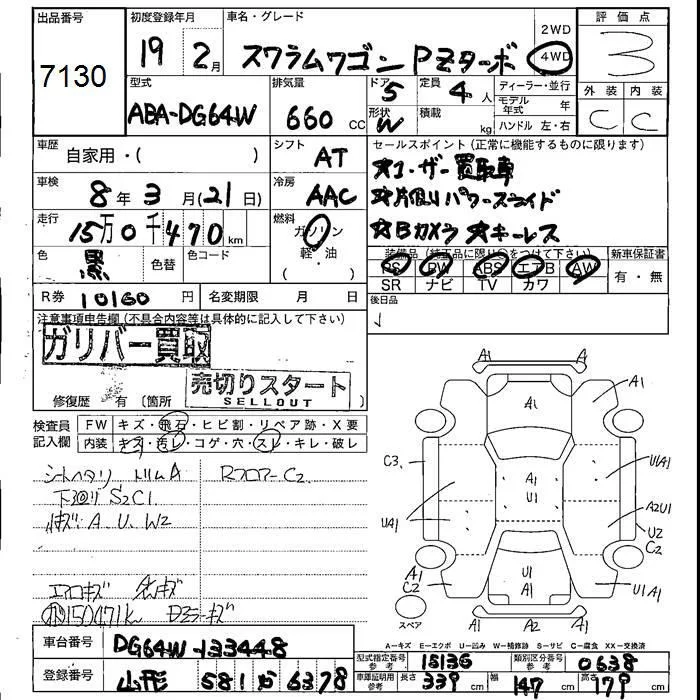 出品番号
7130
初度登録年月
19年2月
車名・グレード
スクラムワゴン PZターボ
2WD
4WD
評価点
3
外装 内装
C C
型式
ABA-DG64W
排気量
660 CC
ドア 5
形状 W
定員 4 人
積載 kg
ディーラー・並行
モデル年式 年
ハンドル 左・右
車歴
自家用・( )
シフト
AT
セールスポイント (正常に機能するものに限ります)
☆ユーザー買取車
☆片側パワースライド
☆Bカメラ ☆キーレス
車検
8年3月(21日)
冷房
AAC
走行
15万0千470km
燃料
ガソリン
軽・油
色
黒
色替
色コード
装備品 (純正品に限り○をつけて下さい)
PS PW ABS エアB AW
SR ナビ TV カワ
新車保証書
有・無
R券 10160 円
名変期限 月 日
後日品
注意事項申告欄 (不具合内容等は具体的に記入して下さい)
ガリバー買取
売切りスタート
SELLOUT
修復歴 有 (箇所
検査員記入欄
FW キズ・飛石・ヒビ割・リペア跡・X要
内装 キズ・汚レ・コゲ・穴・スレ・キレ・破レ
シートヘタリ トリムA Rフロアー C2
下廻り S2C1
小キズ A、U、W2
エアロキズ
150471K
車台番号
DG64W-133448
登録番号
山形 581 6378
A1
A
A1
A1
C3
A1
U1
U1A1
UA1
A2U1
U2
C2
A1
C2
U1
A1
U1A1
A1 A2 A
スペア
A=キズ E=エクボ U=凹み W=補修跡 S=サビ C=腐食 XX=交換済
型式指定番号 参考 15136
類別区分番号 参考 0638
車庫証明用 参考 長さ 339 cm 幅 147 cm 高さ 179 cm